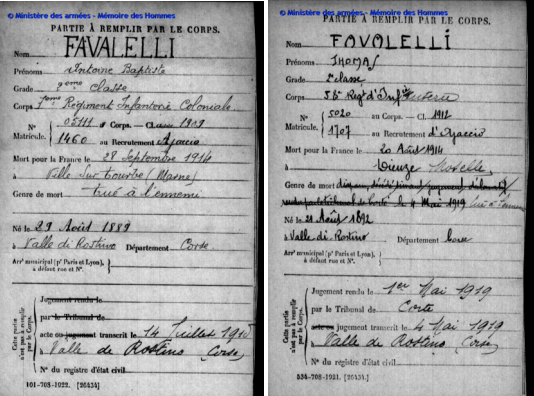 © Ministère des armées - Mémoire des Hommes
PARTIE À REMPLIR PAR LE CORPS.
Nom FAVALELLI
Prénoms Antoine Baptiste
Grade 2ème Classe
Corps 1er Régiment Infanterie Coloniale
N° 03111 au Corps. — Classe 1909
Matricule. 1460 au Recrutement Ajaccio
Mort pour la France le 28 Septembre 1914
à Ville Sur Tourbe (Marne)
Genre de mort tué à l'ennemi
Né le 29 Août 1889
à Valle di Rostino Département Corse
Arrt municipal (pr Paris et Lyon), à défaut rue et N°.
Cette partie n'est pas à remplir par le Corps.
Jugement rendu le
par le Tribunal de
acte ou jugement transcrit le 14 Juillet
à Valle de Rostino (Corse)
N° du registre d'état civil
101-708-1922. [26434]
© Ministère des armées - Mémoire des Hommes
PARTIE À REMPLIR PAR LE CORPS.
Nom FAVALELLI
Prénoms THOMAS
Grade 2e classe
Corps Regt d'Infanterie
N° 5020 au Corps. — Cl. 1912
Matricule. 1707 au Recrutement d'Ajaccio
Mort pour la France le 20 Août 1914
à Dieuze Moselle
Genre de mort
4 Mai 1919
Né le 21 Août 1892
à Valle di Rostino Département Corse
Arrt municipal (pr Paris et Lyon), à défaut rue et N°.
Cette partie n'est pas à remplir par le Corps.
Jugement rendu le 1er Mai 1919
par le Tribunal de Corte
acte ou jugement transcrit le 4 Mai 1919
à Valle de Rostino (Corse)
N° du registre d'état civil
534-708-1921. [26434]